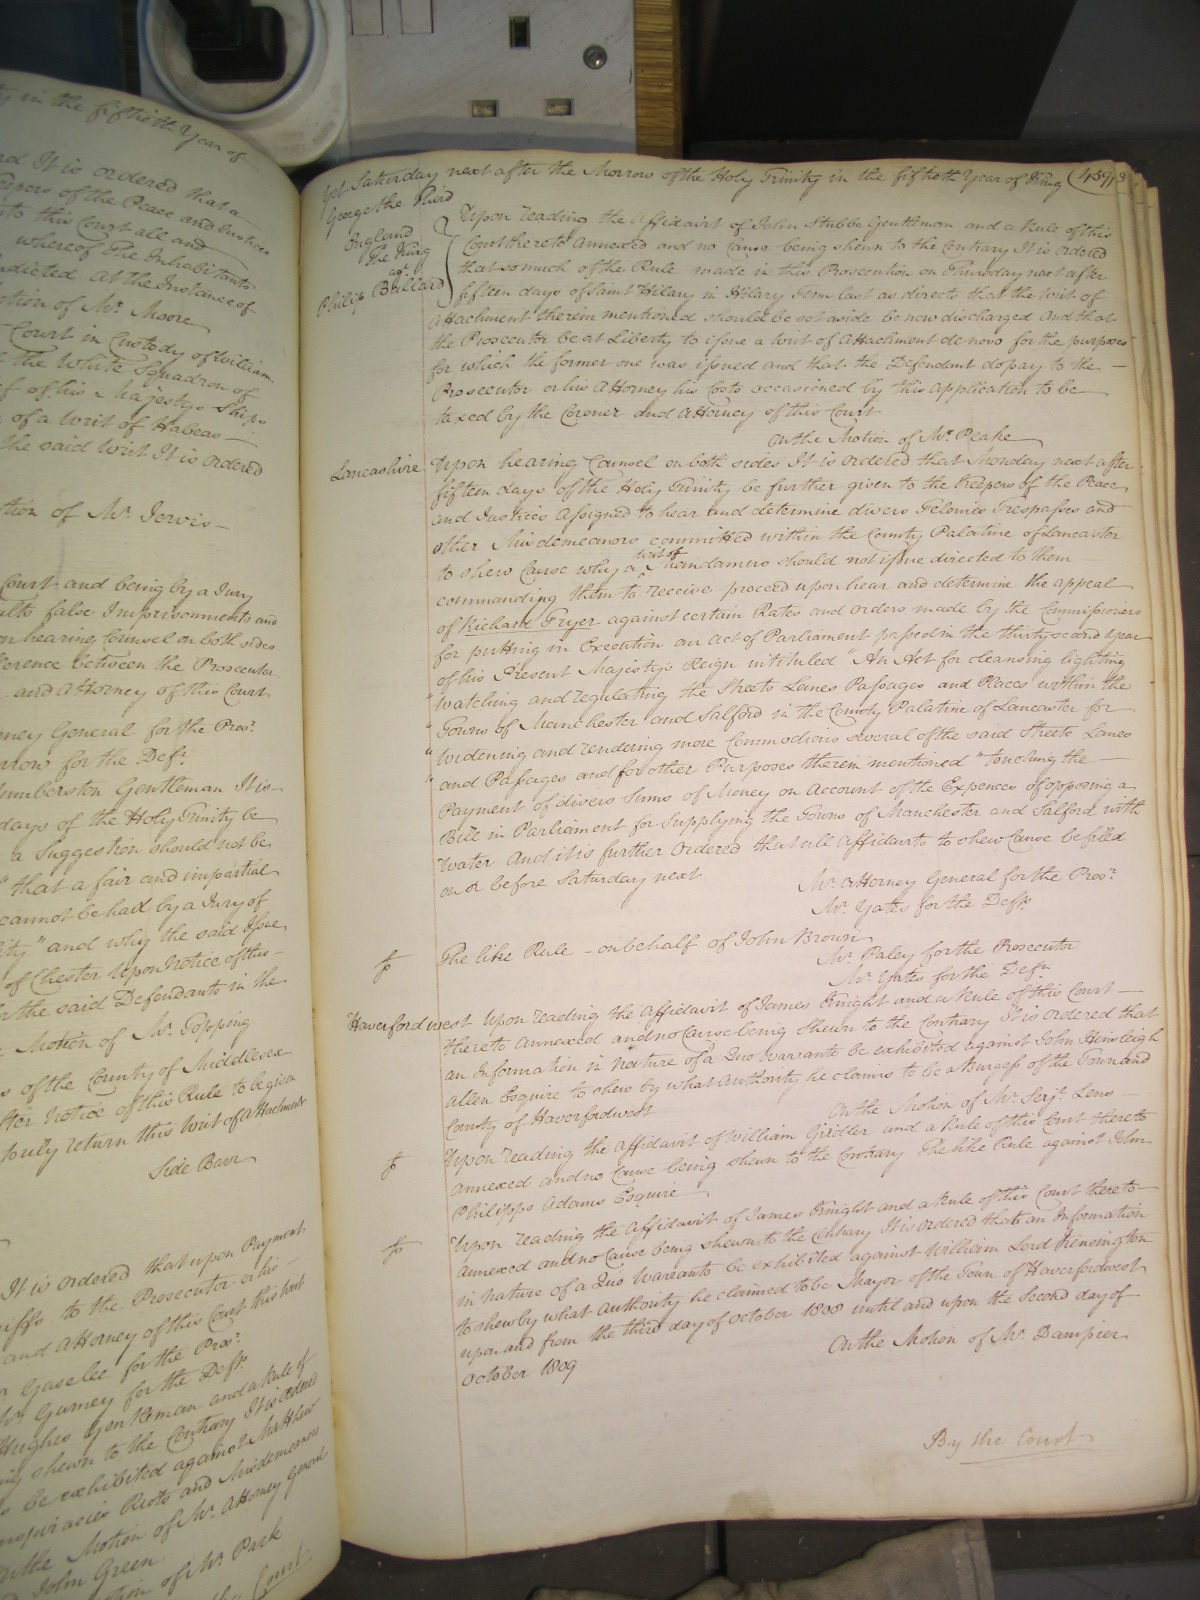 ty in the fiftieth Year of
nd It is ordered that a
eepers of the Peace and Justices
nto this Court all and
whereof The Inhabitants
ndicted at the Instance of
otion of Mr. Moore
Court in Custody of William
the White Squadron of
of his Majestys Ships
of a Writ of Habeas
the said Writ It is ordered
tion of Mr. Jervis
Court and being by a Jury
ults false Imprisonments and
on hearing Counsel on both sides
ference between the Prosecutor
and Attorney of this Court
rney General for the Prosr.
rrow for the Deft.
umberston Gentleman It is
days of the Holy Trinity be
a Suggestion should not be
"that a fair and impartial
cannot be had by a Jury of
ity" and why the said Issue
of Chester Upon Notice of this
r the said Defendants in the
Motion of Mr. Topping
s of the County of Middlesex
fter Notice of this Rule to be given
truly return this Writ of Attachment
Side Barr
It is ordered that upon Payment
iffs to the Prosecutor or his
and Attorney of this Court this Writ
Gaselee for the Prosr.
Mr. Gurney for the Deft.
Hughes Gentleman and a Rule of
ing shewn to the Contrary It is ordered
be exhibited against Matthew
nspiracies Riots and Misdemeanors
n the Motion of Mr. Attorney General
John Green
otion of Mr. Park
the Court
Yet Saturday next after the Morrow of the Holy Trinity in the fiftieth Year of King
George the Third
459
England
The King
agt.
Philip Bullard
Upon reading the Affidavit of John Stubbe Gentleman and a Rule of this
Court thereto annexed and no Cause being shewn to the Contrary It is ordered
that so much of the Rule made in this Prosecution on Thursday next after
fifteen days of Saint Hilary in Hilary Term last as directs that the Writ of
Attachment therein mentioned should be set aside be now discharged And that
the Prosecutor be at Liberty to issue a Writ of Attachment de novo for the purposes
for which the former one was issued and that the Defendant do pay to the
Prosecutor or his Attorney his Costs occasioned by this Application to be
taxed by the Coroner and Attorney of this Court
On the Motion of Mr. Peake
Lancashire
Upon hearing Counsel on both sides It is ordered that Monday next after
fifteen days of the Holy Trinity be further given to the Keepers of the Peace
and Justices Assigned to hear and determine divers Felonies Trespasses and
other Misdemeanors committed within the County Palatine of Lancaster
to shew Cause why a Writ of Mandamus should not issue directed to them
commanding them to receive proceed upon hear and determine the appeal
of Richard Fryer against certain Rates and Orders made by the Commissioners
for putting in Execution an Act of Parliament passed in the thirty second year
of his Present Majestys Reign intituled "An Act for cleansing lighting
"watching and regulating the Streets Lanes Passages and Places within the
"Towns of Manchester and Salford in the County Palatine of Lancaster for
"widening and rendering more Commodious several of the said Streets Lanes
"and Passages and for other Purposes therein mentioned" touching the
Payment of divers Sums of Money on Account of the Expences of opposing a
Bill in Parliament for Supplying the Towns of Manchester and Salford with
Water And it is further Ordered that all Affidavits to shew Cause be filed
on or before Saturday next
Mr. Attorney General for the Prosr.
Mr. Yates for the Defts.
The like Rule on behalf of John Brown
Mr. Paley for the Prosecutor
Mr. Yates for the Deft.
Haverfordwest
Upon reading the Affidavit of James Knight and a Rule of this Court
thereto annexed and no Cause being shewn to the Contrary It is ordered that
an Information in Nature of a Quo Warranto be exhibited against John Hensleigh
Allen Esquire to shew by what Authority he claims to be a Burgess of the Town and
County of Haverfordwest
On the Motion of Mr. Serjt. Lens
Upon reading the Affidavit of William Girdler and a Rule of this Court thereto
annexed and no Cause being shewn to the Contrary The like Rule against John
Philipps Adams Esquire
Upon reading the Affidavit of James Knight and a Rule of this Court thereto
annexed and no Cause being shewn to the Contrary It is ordered that an Information
in nature of a Quo Warranto be exhibited against William Lord Kensington
to shew by what Authority he claimed to be Mayor of the Town of Haverfordwest
upon and from the third day of October 1808 until and upon the Second day of
October 1809
On the Motion of Mr. Dampier
By the Court